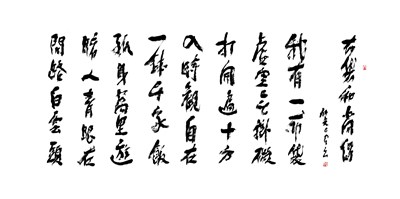 布袋和尚偈
我有一布袋
虛空无掛礙
打開遍十方
入時觀自在
一鉢千家飯
孤身萬里遊
睹人青眼在
問路白雲頭